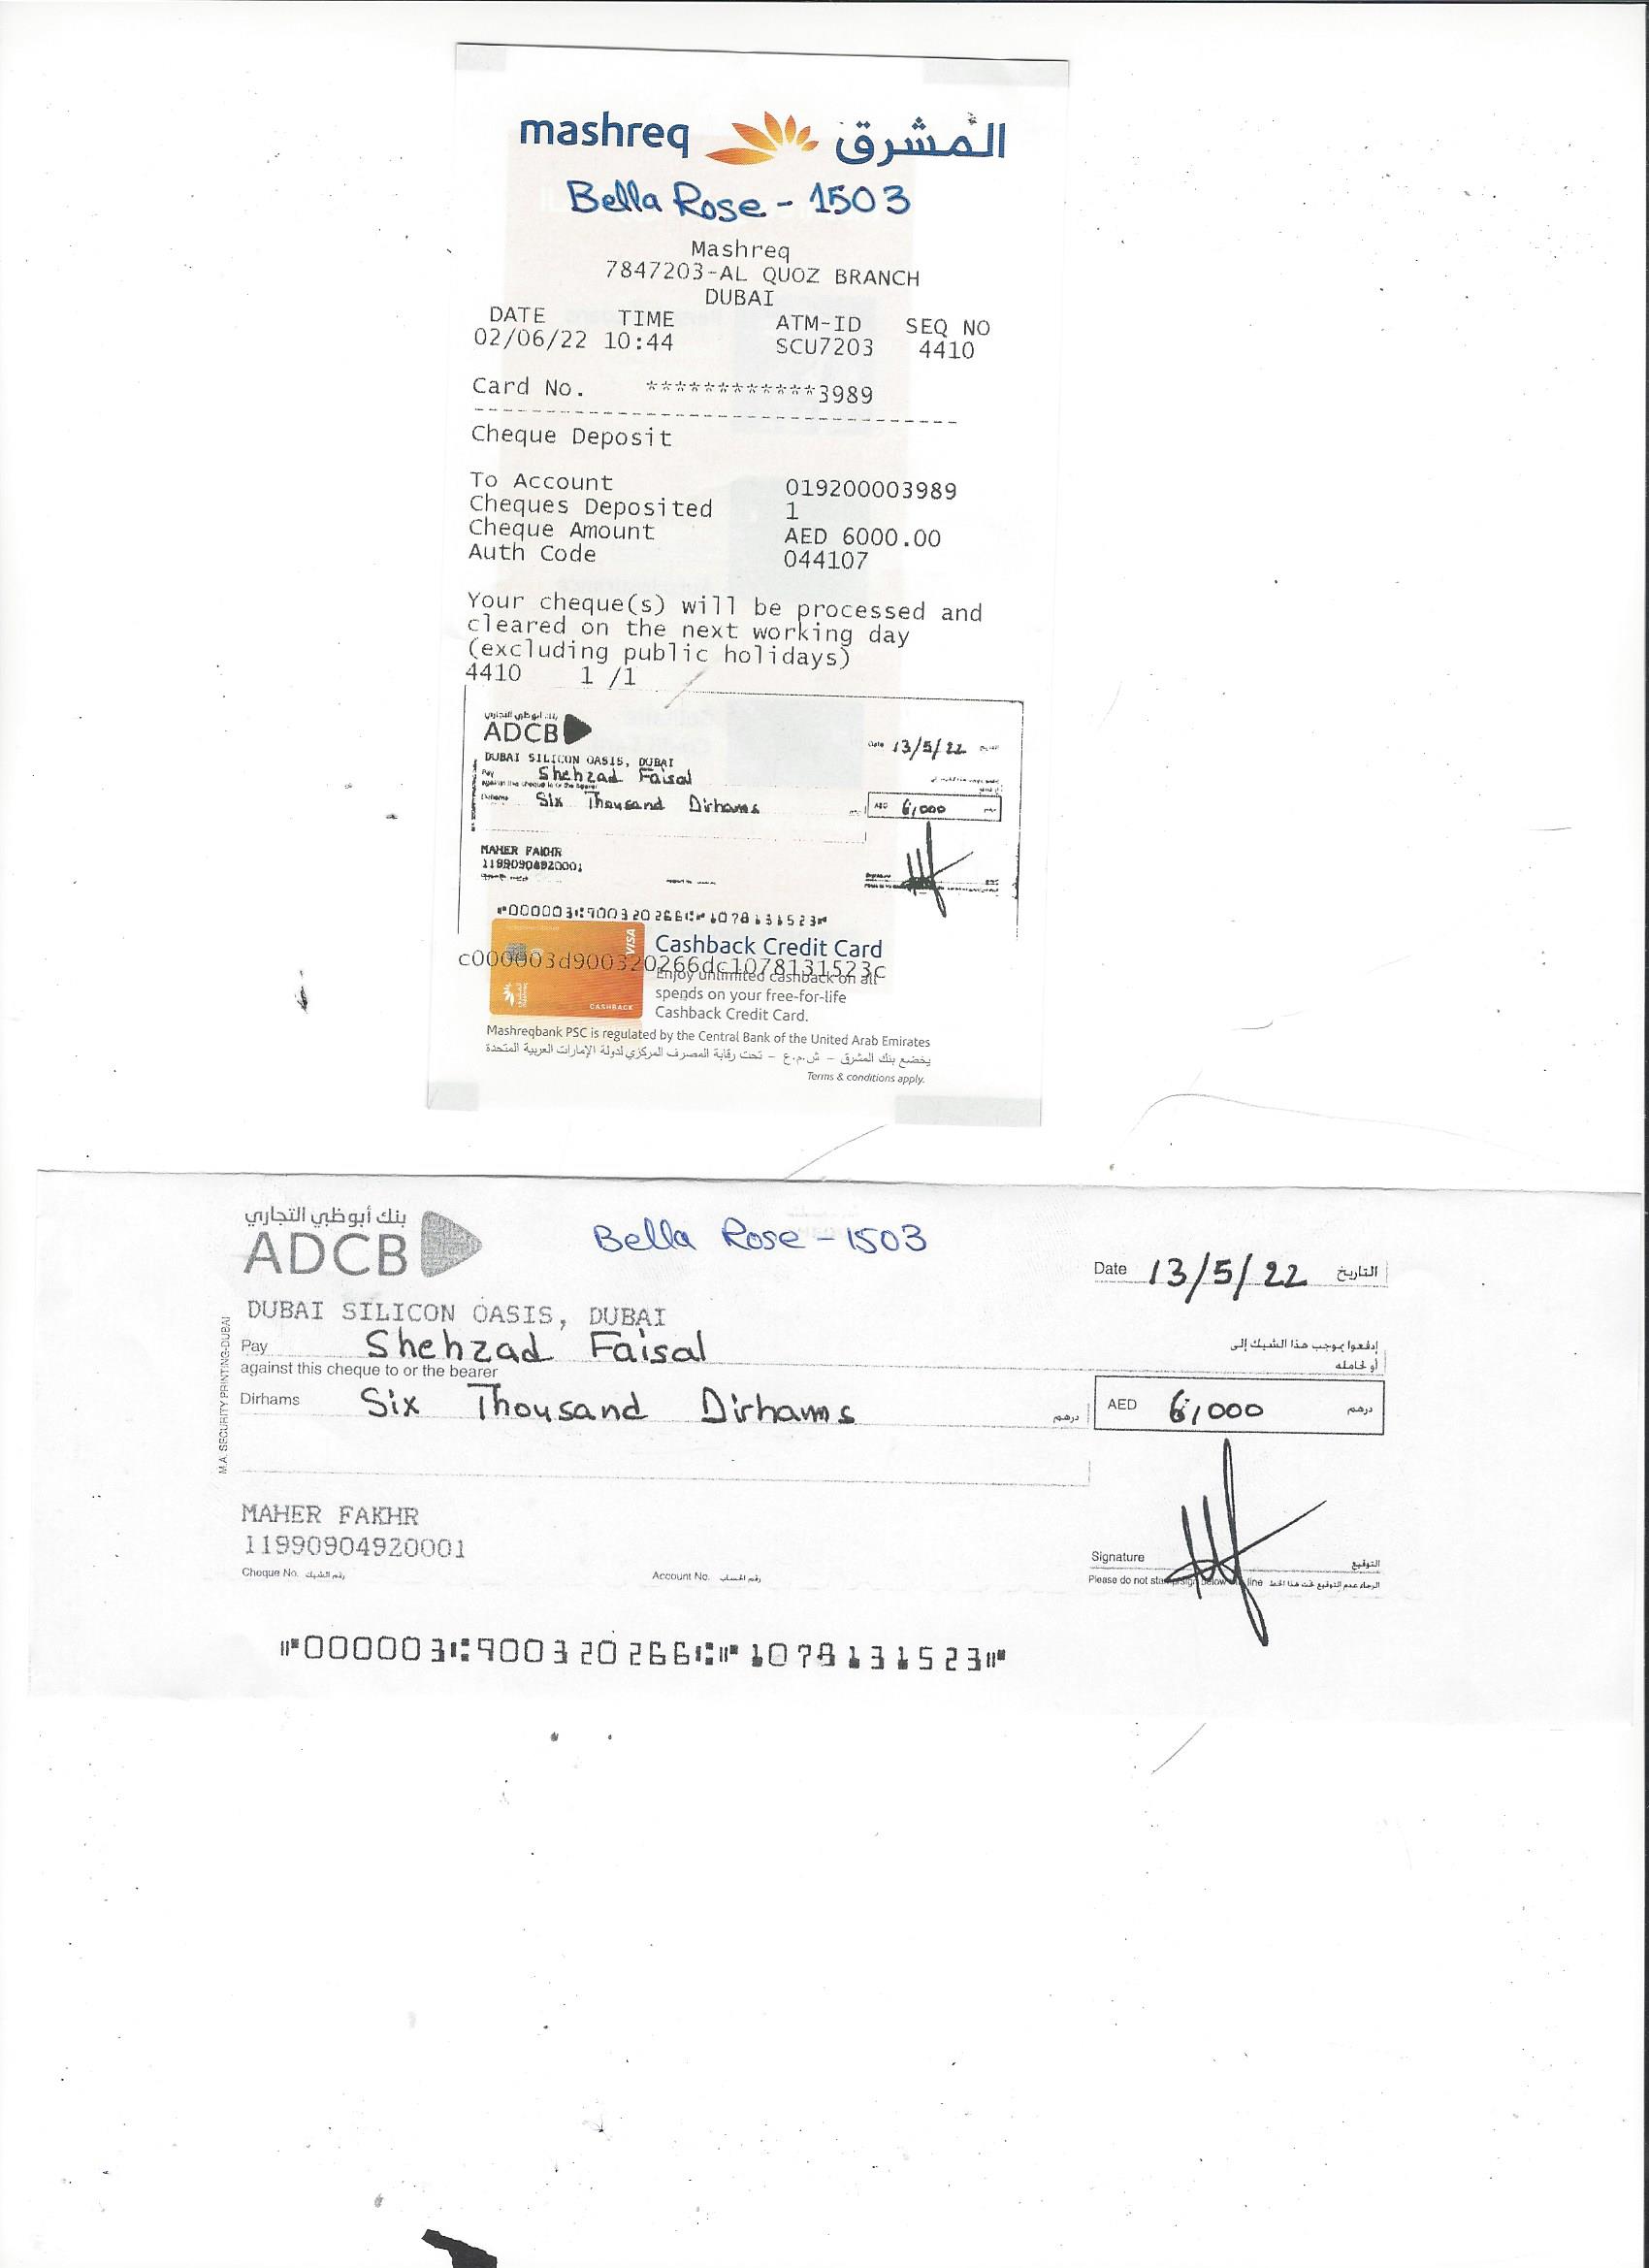 mashreq المشرق
Bella Rose - 1503
Mashreq
7847203-AL QUOZ BRANCH
DUBAI
DATE TIME ATM-ID SEQ NO
02/06/22 10:44 SCU7203 4410
Card No. ************3989
Cheque Deposit
To Account 019200003989
Cheques Deposited 1
Cheque Amount AED 6000.00
Auth Code 044107
Your cheque(s) will be processed and
cleared on the next working day
(excluding public holidays)
4410 1 /1
بنك أبوظبي التجاري
ADCB
Date 13/5/22
DUBAI SILICON OASIS, DUBAI
Pay Shehzad Faisal
against this cheque to or the bearer
Dirhams Six Thousand Dirhams
AED 6,000 درهم
MAHER FAKHR
11990904920001
⑈000003⑆900320266⑆⑈1078131523⑈
VISA
CASHBACK
Cashback Credit Card
c000003d900320266dc1078131523c
Enjoy unlimited cashback on all
spends on your free-for-life
Cashback Credit Card.
Mashreqbank PSC is regulated by the Central Bank of the United Arab Emirates
يخضع بنك المشرق - ش.م.ع - تحت رقابة المصرف المركزي لدولة الإمارات العربية المتحدة
Terms & conditions apply.
بنك أبوظبي التجاري
ADCB
Bella Rose - 1503
Date 13/5/22 التاريخ
DUBAI SILICON OASIS, DUBAI
Pay Shehzad Faisal إدفعوا بموجب هذا الشيك إلى
against this cheque to or the bearer أو لحامله
Dirhams Six Thousand Dirhams درهم
AED 6,000 درهم
M.A. SECURITY PRINTING-DUBAI
MAHER FAKHR
11990904920001
Cheque No. رقم الشيك Account No. رقم الحساب
Signature التوقيع
Please do not stamp/sign below line الرجاء عدم التوقيع تحت هذا الخط
⑈000003⑆900320266⑆⑈1078131523⑈